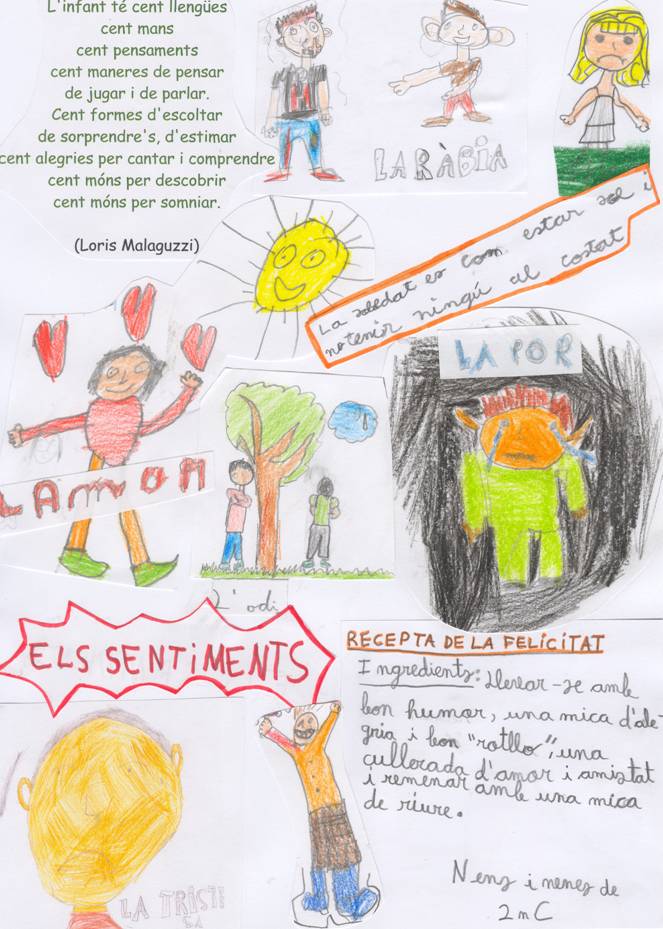 L'infant té cent llengües
cent mans
cent pensaments
cent maneres de pensar
de jugar i de parlar.
Cent formes d'escoltar
de sorprendre's, d'estimar
cent alegries per cantar i comprendre
cent móns per descobrir
cent móns per somniar.
(Loris Malaguzzi)
LA RÀBIA
La soledat es com estar sol i
no tenir ningú al costat
LA POR
LAMOR
L'odi
ELS SENTIMENTS
RECEPTA DE LA FELICITAT
Ingredients: Llevar-se amb
bon humor, una mica d'ale-
gria i bon "rotllo", una
cullerada d'amor i amistat
i remenar amb una mica
de riure.
Nens i nenes de
2n C
LA TRISTE
SA